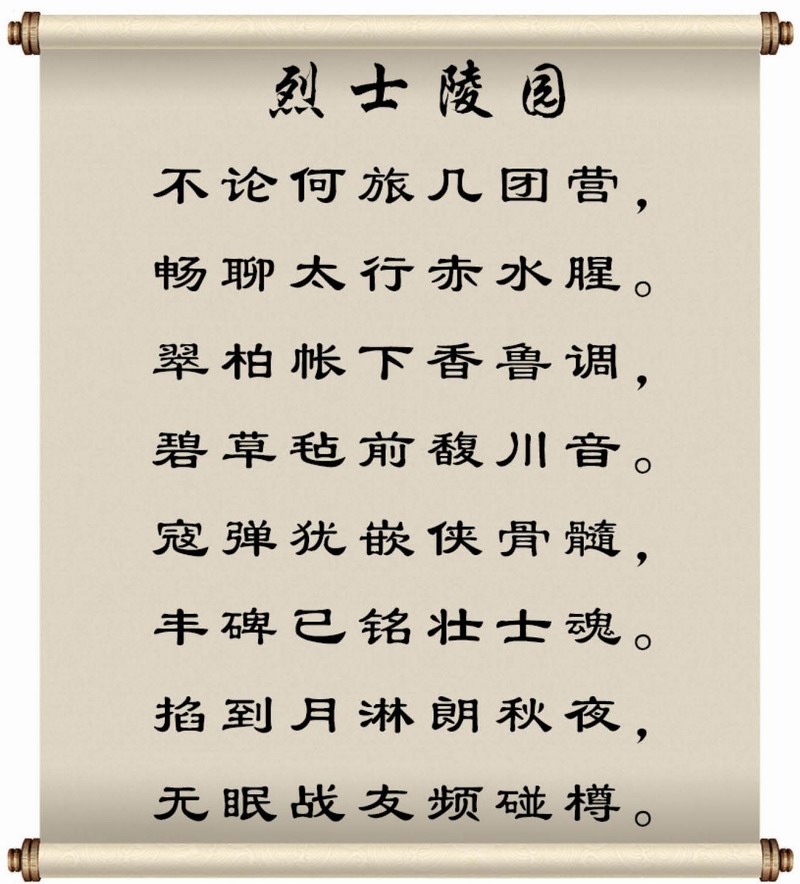 烈士陵园
不论何旅几团营，
畅聊太行赤水腥。
翠柏帐下香鲁调，
碧草毡前馥川音。
寇弹犹嵌侠骨髓，
丰碑已铭壮士魂。
掐到月淋朗秋夜，
无眠战友频碰樽。